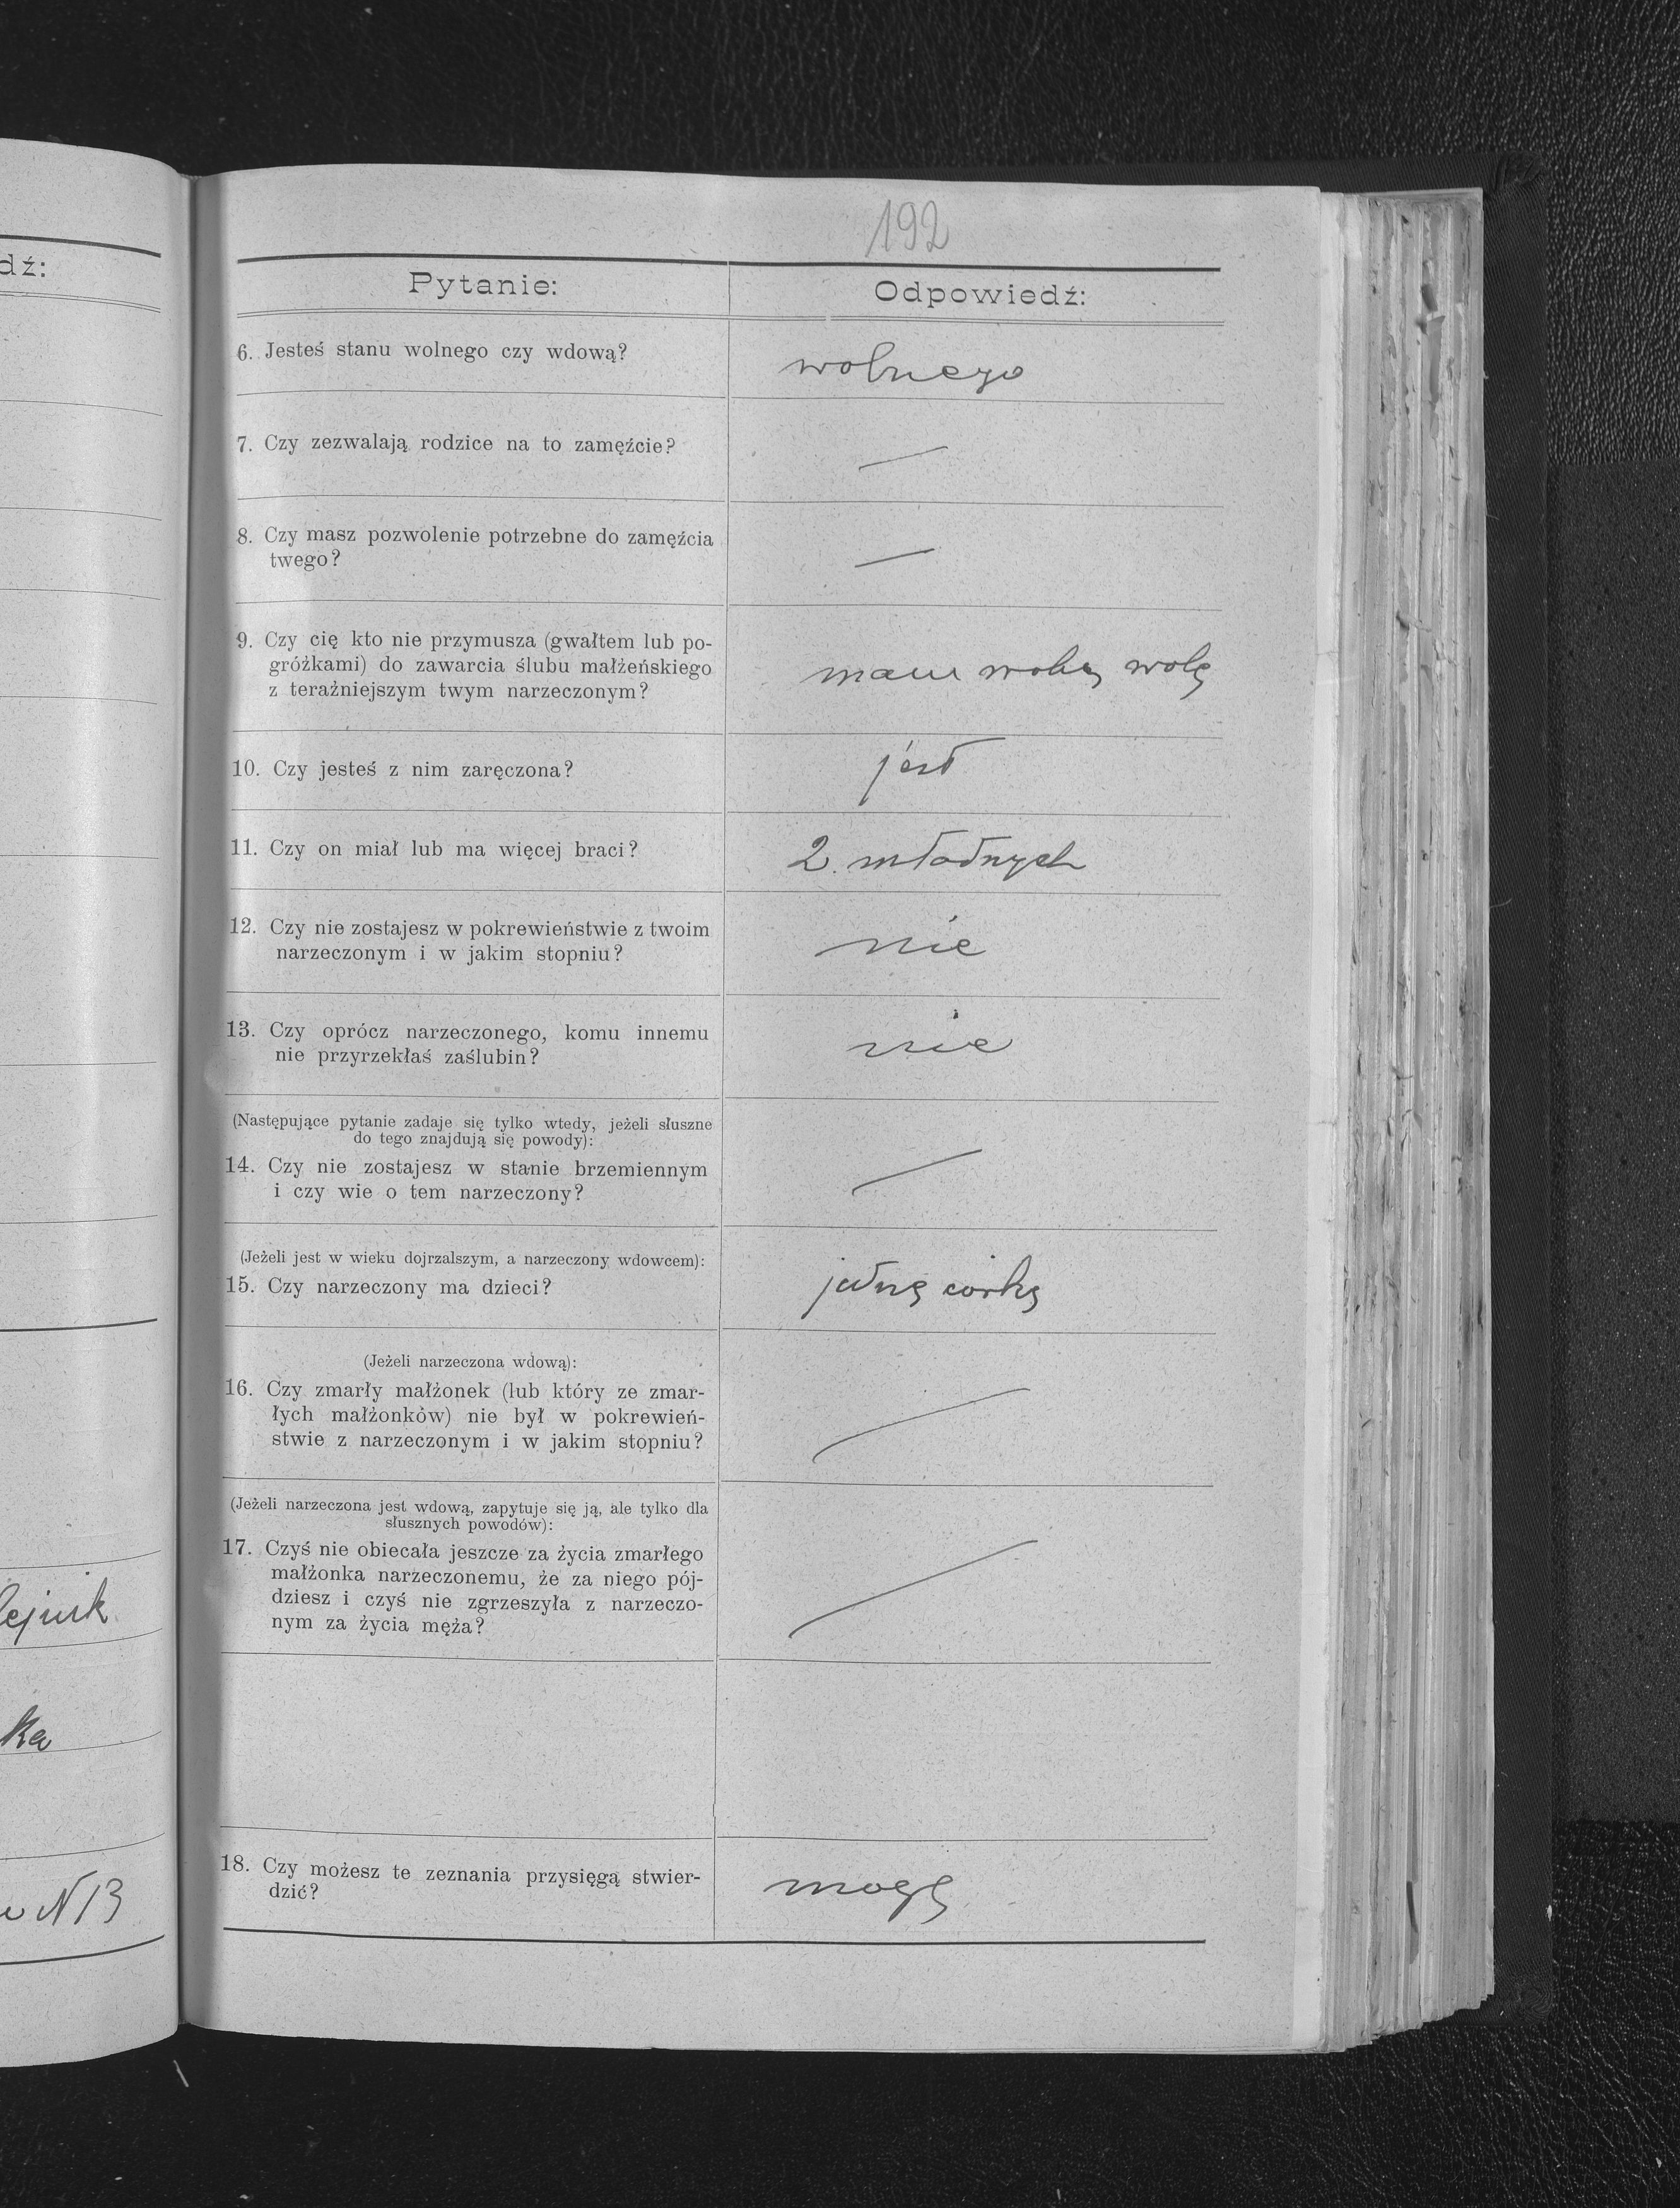 dź:
lejnik
ka
w N 13
192
Pytanie:
Odpowiedź:
6. Jesteś stanu wolnego czy wdową?
wolnego
7. Czy zezwalają rodzice na to zamęźcie?
—
8. Czy masz pozwolenie potrzebne do zamęźcia
twego?
—
9. Czy cię kto nie przymusza (gwałtem lub po-
gróżkami) do zawarcia ślubu małżeńskiego
z teraźniejszym twym narzeczonym?
mam wolną wolę
10. Czy jesteś z nim zaręczona?
jest
11. Czy on miał lub ma więcej braci?
2. młodnych
12. Czy nie zostajesz w pokrewieństwie z twoim
narzeczonym i w jakim stopniu?
nie
13. Czy oprócz narzeczonego, komu innemu
nie przyrzekłaś zaślubin?
nie
(Następujące pytanie zadaje się tylko wtedy, jeżeli słuszne
do tego znajdują się powody):
14. Czy nie zostajesz w stanie brzemiennym
i czy wie o tem narzeczony?
—
(Jeżeli jest w wieku dojrzalszym, a narzeczony wdowcem):
15. Czy narzeczony ma dzieci?
jedną córkę
(Jeżeli narzeczona wdową):
16. Czy zmarły małżonek (lub który ze zmar-
łych małżonków) nie był w pokrewień-
stwie z narzeczonym i w jakim stopniu?
—
(Jeżeli narzeczona jest wdową, zapytuje się ją, ale tylko dla
słusznych powodów):
17. Czyś nie obiecała jeszcze za życia zmarłego
małżonka narzeczonemu, że za niego pój-
dziesz i czyś nie zgrzeszyła z narzeczo-
nym za życia męża?
—
18. Czy możesz te zeznania przysięgą stwier-
dzić?
mogę